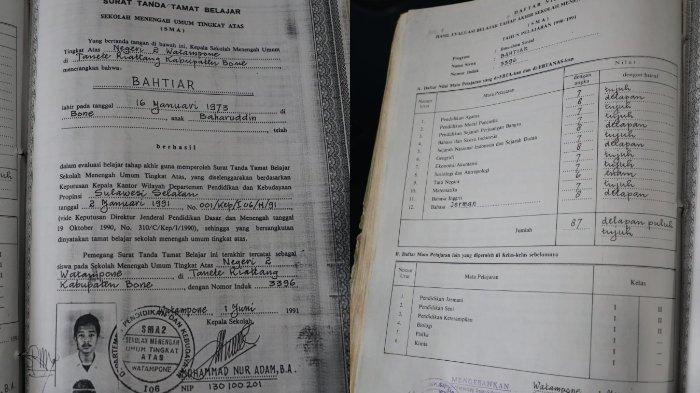 SURAT TANDA TAMAT BELAJAR
SEKOLAH MENENGAH UMUM TINGKAT ATAS
(SMA)
Yang bertanda tangan di bawah ini, Kepala Sekolah Menengah Umum
Tingkat Atas Negeri 2 Watampone
di Tanete Riattang Kabupaten Bone
menerangkan bahwa:
BAHTIAR
lahir pada tanggal 16 Yanuari 1973 di
Bone anak Baharuddin
telah
berhasil
dalam evaluasi belajar tahap akhir guna memperoleh Surat Tanda Tamat Belajar
Sekolah Menengah Umum Tingkat Atas, yang diselenggarakan berdasarkan
Keputusan Kepala Kantor Wilayah Departemen Pendidikan dan Kebudayaan
Propinsi Sulawesi Selatan
tanggal 2 Yanuari 1991 No. 001/Kep/I.06/H/91
(vide Keputusan Direktur Jenderal Pendidikan Dasar dan Menengah tanggal
19 Oktober 1990, No. 310/C/Kep/I/1990), sehingga yang bersangkutan
dinyatakan tamat belajar sekolah menengah umum tingkat atas.
Pemegang Surat Tanda Tamat Belajar ini terakhir tercatat sebagai
siswa pada Sekolah Menengah Umum Tingkat Atas Negeri 2
Watampone di Tanete Riattang
Kabupaten Bone dengan Nomor Induk 3396
Watampone 1 Yuni 1991
Kepala Sekolah,
DEPARTEMEN PENDIDIKAN DAN KEBUDAYAAN
SMA2
SEKOLAH MENENGAH
UMUM TINGKAT
ATAS
WATAMPONE
I06
MUHAMMAD NUR ADAM, B.A.
NIP 130 100 201
B.A.
DAFTAR
HASIL EVALUASI BELAJAR TAHAP AKHIR SEKOLAH
(SMA)
TAHUN PELAJARAN 1990-1991
Program :
Nama Siswa : BAHTIAR
Nomor Induk : 3396
A. Daftar Nilai Mata Pelajaran yang
Nomor Urut
Mata Pelajaran
Nilai
dengan angka
dengan huruf
1. Pendidikan Agama 7 tujuh
2. Pendidikan Moral Pancasila 8 delapan
3. Pendidikan Sejarah Perjuangan Bangsa 7 tujuh
4. Bahasa dan Sastra Indonesia 8 delapan
5. Sejarah Nasional Indonesia dan Sejarah Dunia 7 tujuh
6. Geografi 7 tujuh
7. Ekonomi
8. Sosiologi dan Antropologi
9. Tata Negara
10. Matematika 6 enam
11. Bahasa Inggris
12. Bahasa Jerman 8 delapan
Jumlah 87 delapan puluh
tujuh
B. Daftar Mata Pelajaran lain yang diperoleh di kelas-kelas sebelumnya
Nomor Urut
Mata Pelajaran
Kelas
1. Pendidikan Jasmani I II
2. Pendidikan Seni I II
3. Pendidikan Keterampilan I II
4. Biologi I II
5. Fisika I II
6. Kimia I II
MENGESAHKAN
Watampone